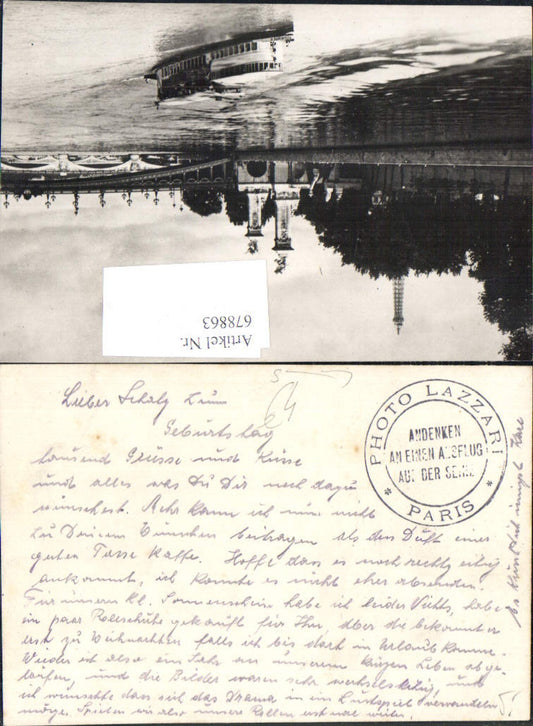 Artikel Nr.
678863
Lieber Schatz zum
Geburtstag
tausend Grüsse und Küsse
und alles was Du Dir noch dazu
wünschest. Mehr kann ich nicht
zu Deinem Wünschen beitragen als den Duft einer
guten Tasse Kaffe. Hoffe dass es noch rechtzeitig
ankommt, ich konnte es nicht eher absenden.
Für unseren kl. Sonnenschein habe ich leider Nichts, habe
ein paar Rollschuhe gekauft für Ihn aber die bekommt er
erst zu Weihnachten falls ich bis dort in Urlaub komme.
Wieder ist also ein Jahr an unserem kurzen Leben abge-
laufen, und die Bilder waren sehr wechselseitig, und
ich wünschte dass sich das Drama in ein Lustspiel verwandeln
möge. Spielen wir also unsere Rollen erst mal weiter.
es küsst Dich innigst
PHOTO LAZZARI
ANDENKEN
AN EINEN AUSFLUG
AUF DER SEINE
* PARIS *